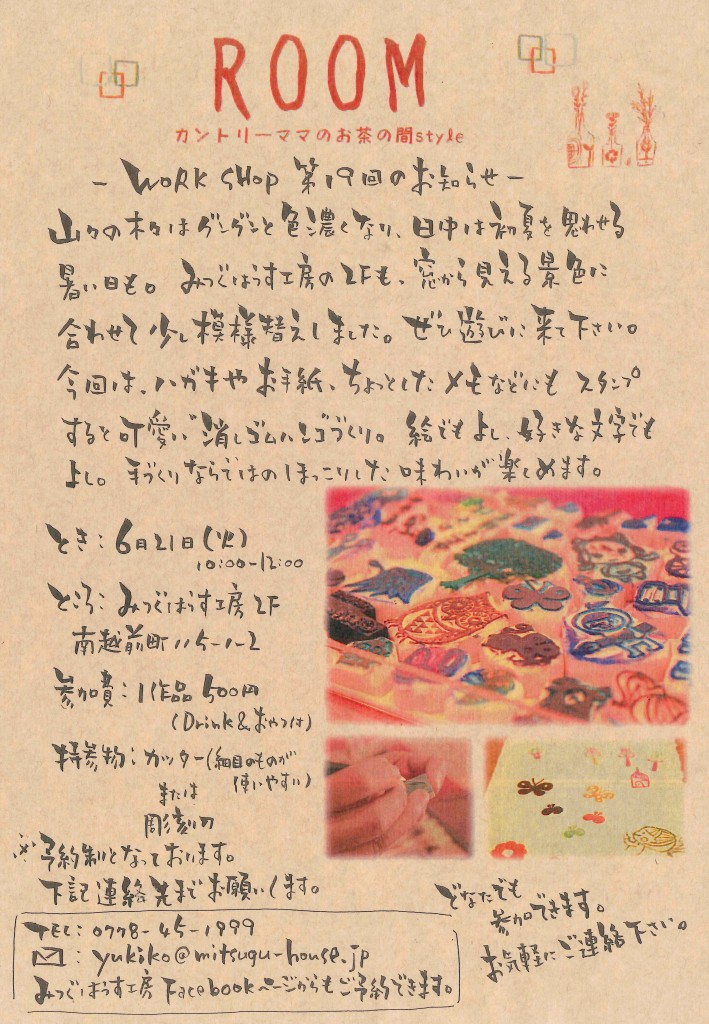 ROOM
カントリーママのお茶の間style
- WORK SHOP 第19回のお知らせ -
山々の木々はグングンと色濃くなり、日中は初夏を思わせる
暑い日も。みつぐはうす工房の2Fも、窓から見える景色に
合わせて少し模様替えしました。ぜひ遊びに来て下さい。
今回は、ハガキやお手紙、ちょっとしたメモなどにもスタンプ
すると可愛い消しゴムハンコづくり。絵でもよし、好きな文字でも
よし。手づくりならではのほっこりした味わいが楽しめます。
とき:6月21日(火)
10:00-12:00
ところ:みつぐはうす工房2F
南越前町115-1-2
参加費:1作品500円
(Drink&おやつ付)
持参物:カッター(細目のものが
使いやすい)
または
彫刻刀
※予約制となっております。
下記連絡先までお願いします。
TEL:0778-45-1999
✉:yukiko@mitsugu-house.jp
みつぐはうす工房Facebookページからもご予約できます。
どなたでも
参加できます。
お気軽にご連絡下さい。